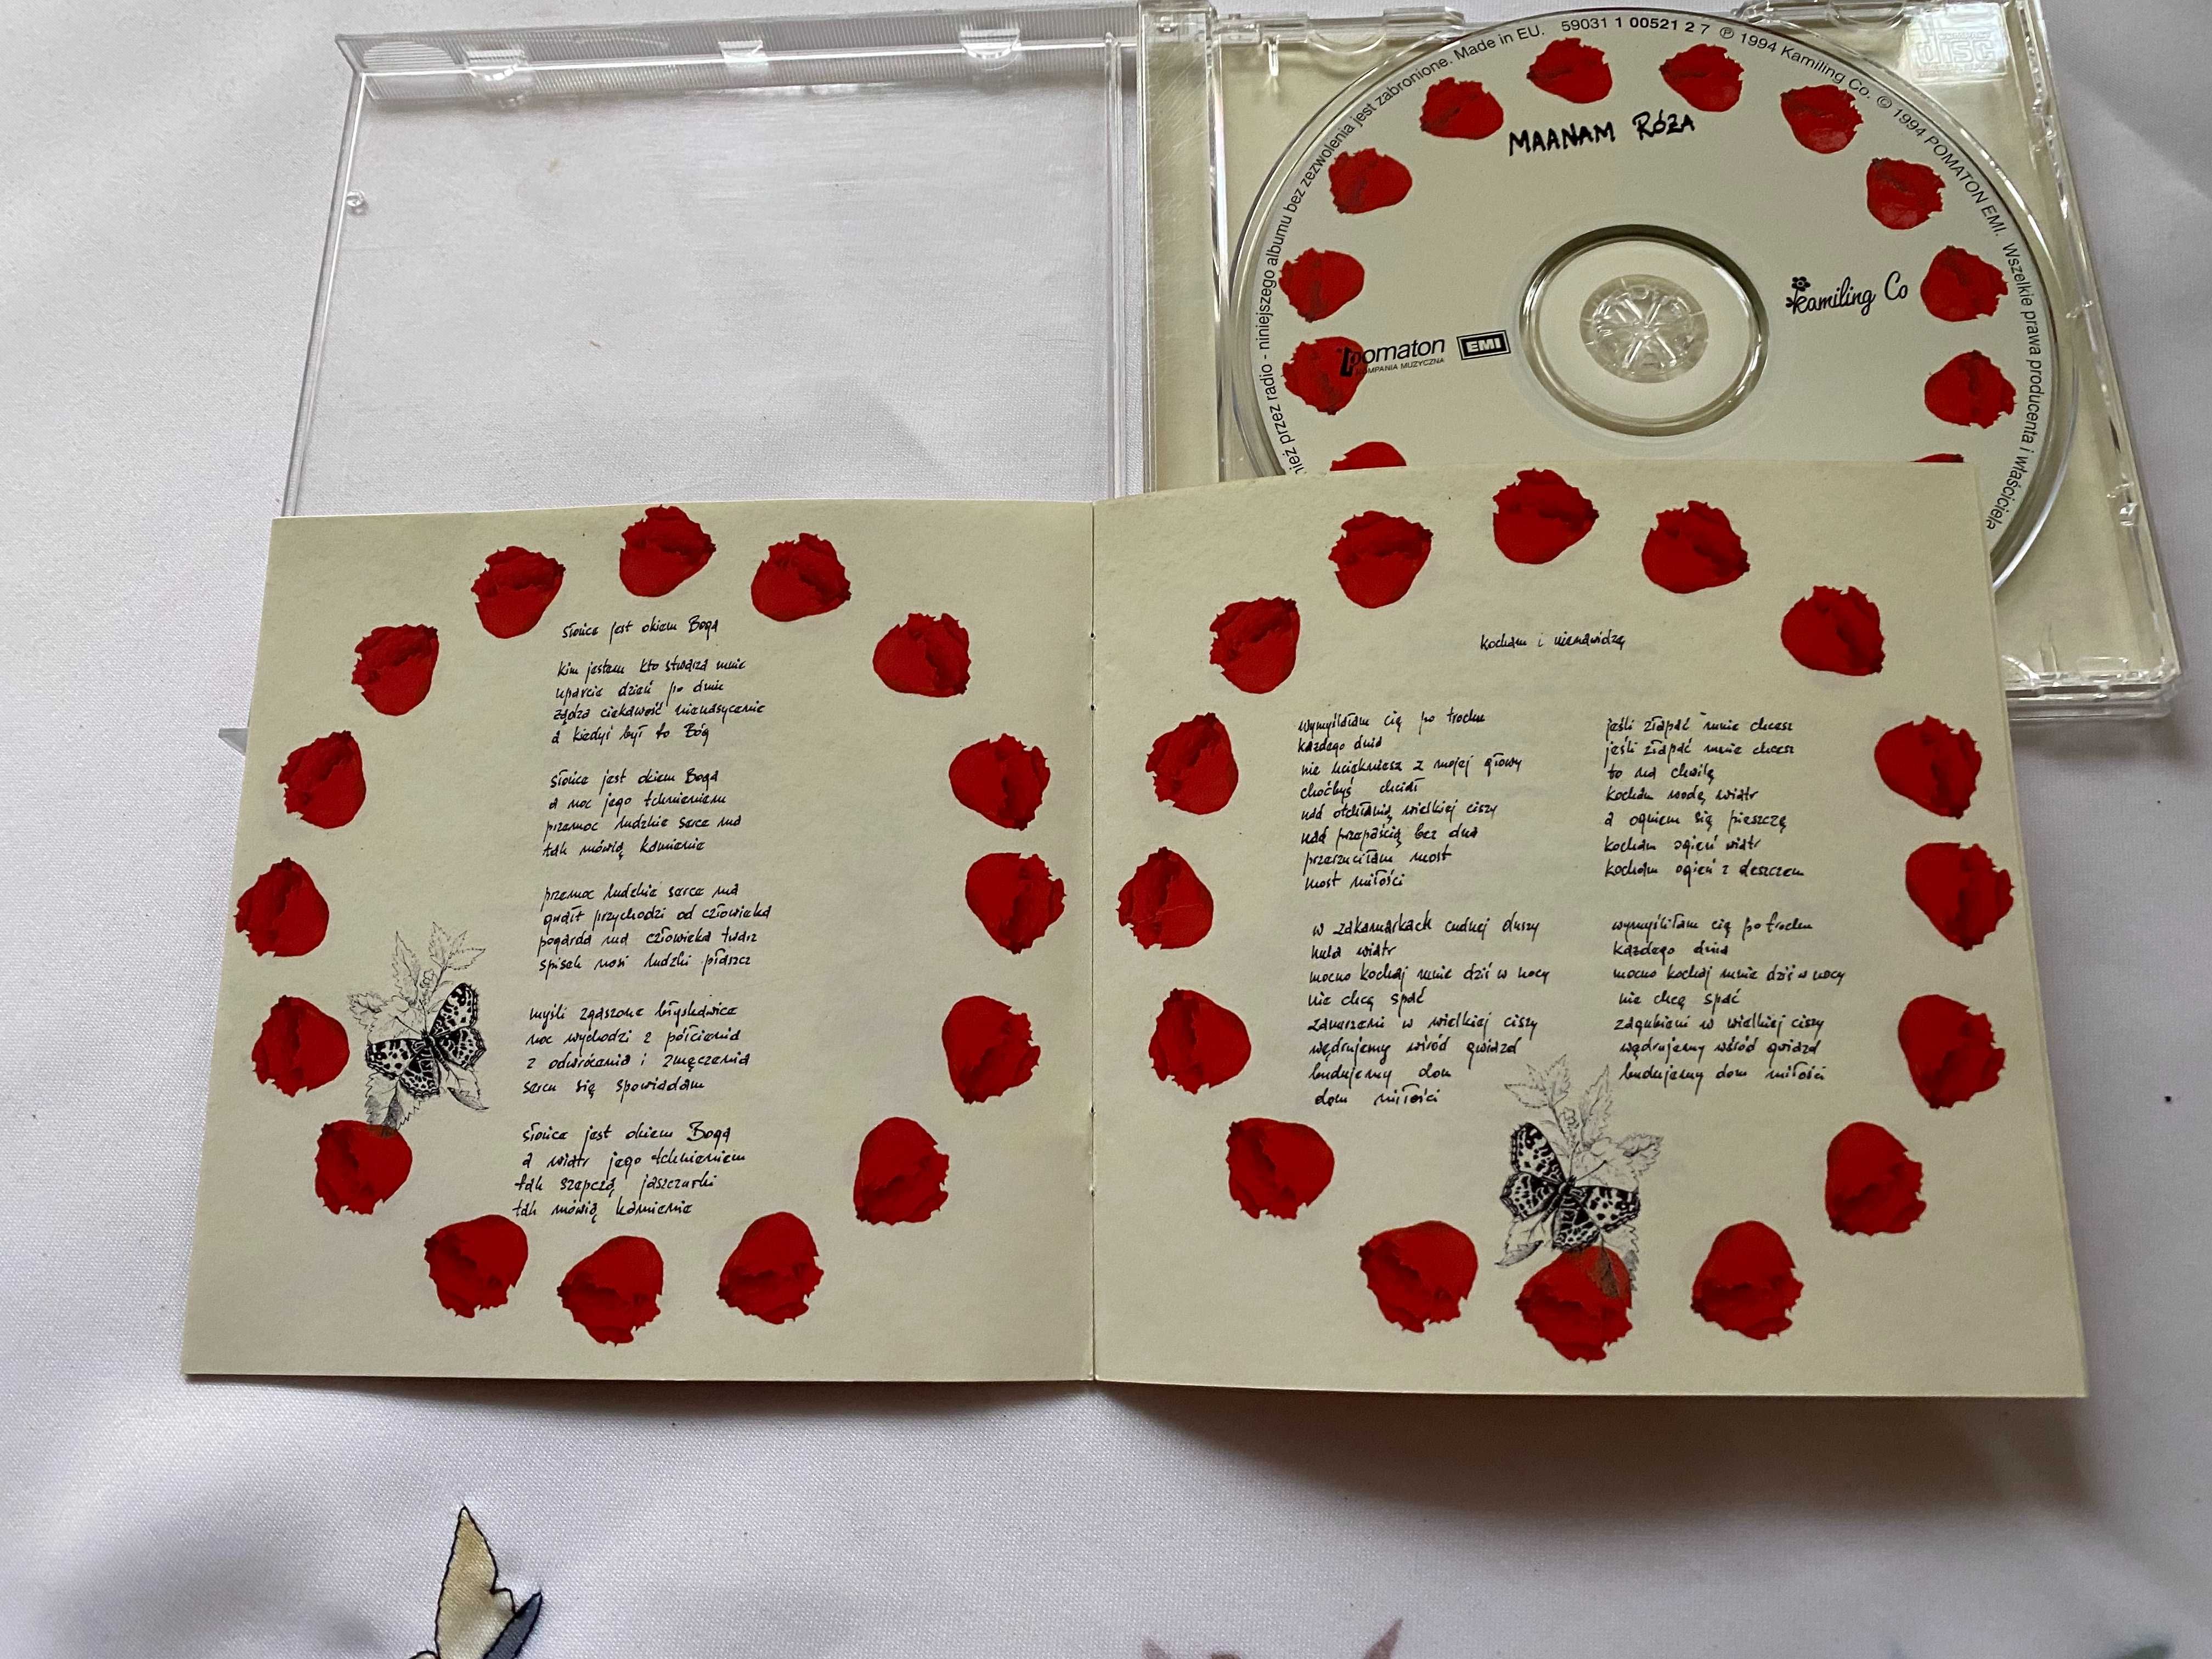 MAANAM RÓŻA
59031 1 00521 2 7 ℗ 1994 Kamiling Co. © 1994 POMATON EMI. Wszelkie prawa producenta i właściciela
nież przez radio - niniejszego albumu bez zezwolenia jest zabronione. Made in EU.
disc
kamiling Co
pomaton EMI
KOMPANIA MUZYCZNA
słońce jest okiem Boga
kim jestem kto stwarza mnie
uparcie dzień po dniu
żądza ciekawość nienasycenie
a kiedyś był to Bóg
słońce jest okiem Boga
a noc jego tchnieniem
przemoc ludzkie serce ma
tak mówią kamienie
przemoc ludzkie serce ma
gwałt przychodzi od człowieka
pogarda ma człowieka twarz
spisek nosi ludzki płaszcz
myśli zgaszone błyskawice
noc wychodzi z półcienia
z odwrócenia i zmęczenia
sercu się spowiadam
słońce jest okiem Boga
a wiatr jego tchnieniem
tak szepczą jaszczurki
tak mówią kamienie
kocham i nienawidzę
wymyślałam cię po trochu
każdego dnia
nie uciekniesz z mojej głowy
choćbyś chciał
nad otchłanią wielkiej ciszy
nad przepaścią bez dna
przerzuciłam most
most miłości
w zakamarkach cudnej duszy
hula wiatr
mocno kochaj mnie dziś w nocy
nie chcę spać
zanurzeni w wielkiej ciszy
wędrujemy wśród gwiazd
budujemy dom
dom miłości
jeśli złapać mnie chcesz
jeśli złapać mnie chcesz
to na chwilę
kocham wodę, wiatr
a ogniem się pieszczę
kocham ogień wiatr
kocham ogień z deszczem
wymyśliłam cię po trochu
każdego dnia
mocno kochaj mnie dziś w nocy
nie chcę spać
zagubieni w wielkiej ciszy
wędrujemy wśród gwiazd
budujemy dom miłości